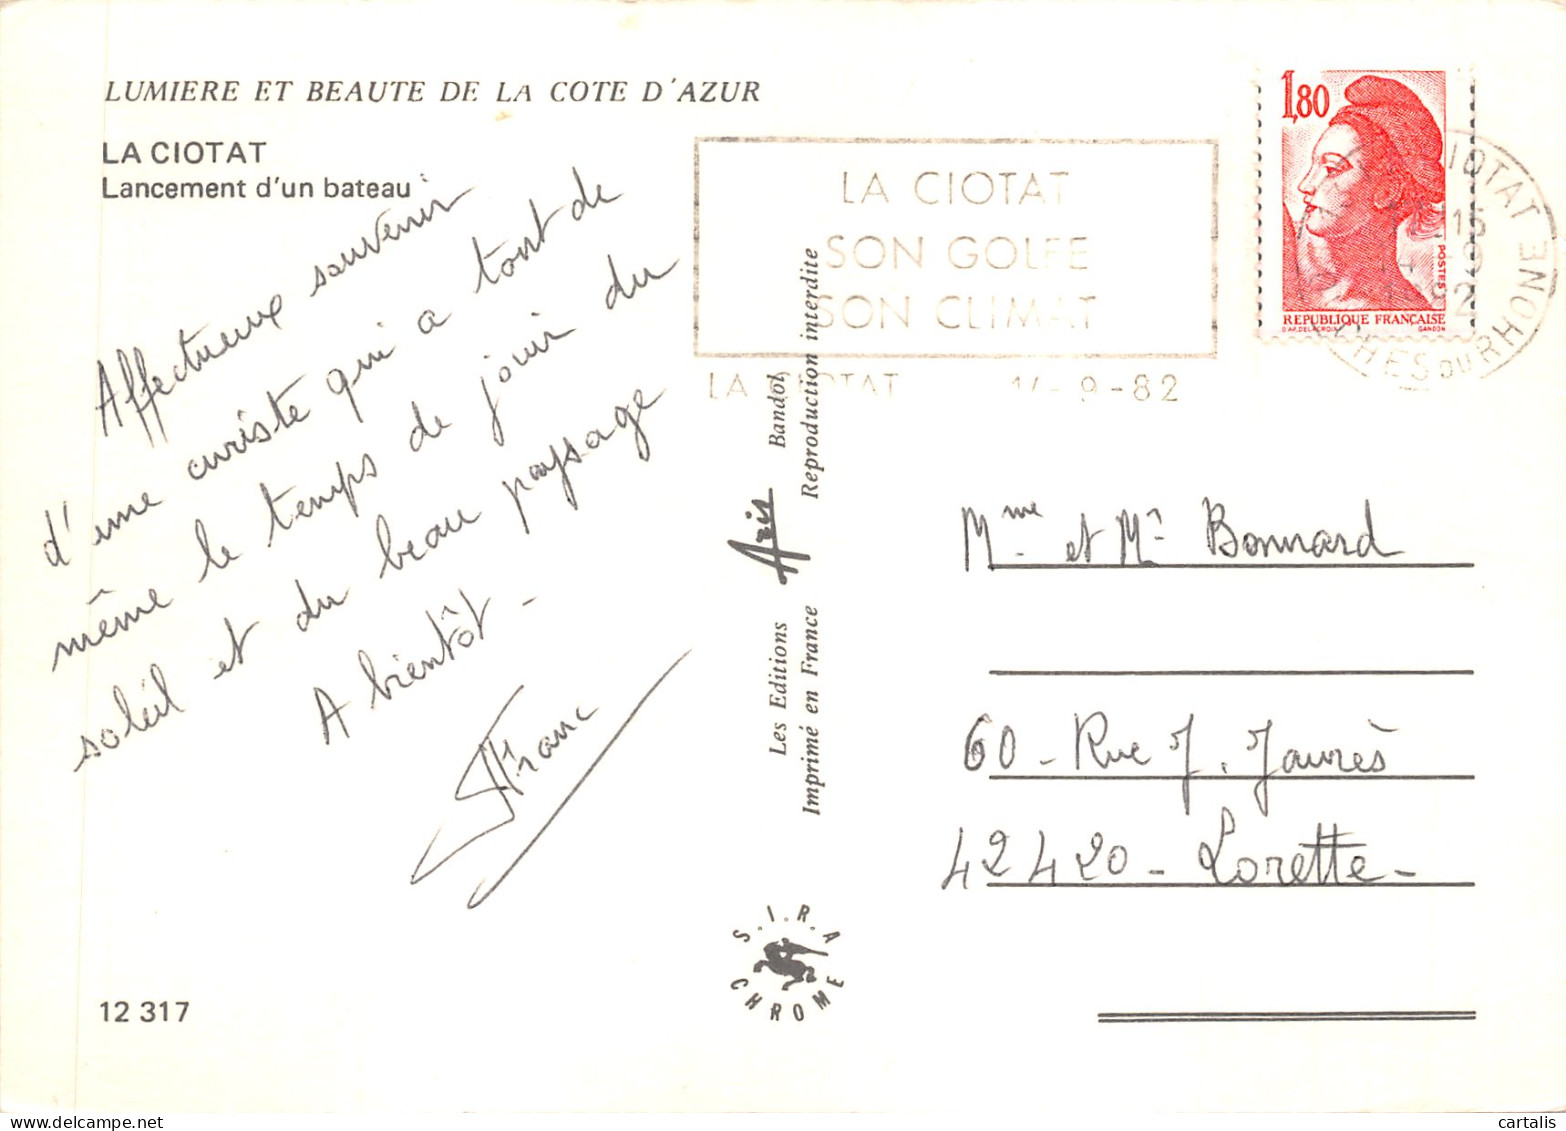 LUMIERE ET BEAUTE DE LA COTE D'AZUR
LA CIOTAT
Lancement d'un bateau
Affectueux souvenir
d'une curiste qui a tant de
même le temps de jouir du
soleil et du beau paysage
A bientôt -
Franc
12 317
LA CIOTAT
SON GOLFE
SON CLIMAT
LA CIOTAT 14-9-82
1,80
POSTES
REPUBLIQUE FRANÇAISE
D'AP. DELACROIX GANDON
CIOTAT
15
14-9
1982
CHES DU RHONE
Les Editions Aris Bandol
Imprimé en France Reproduction interdite
S.I.R.A
CHROME
Mme et Mr Bonnard
60 - Rue J. Jaurès
42420 - Lorette -
cartalis